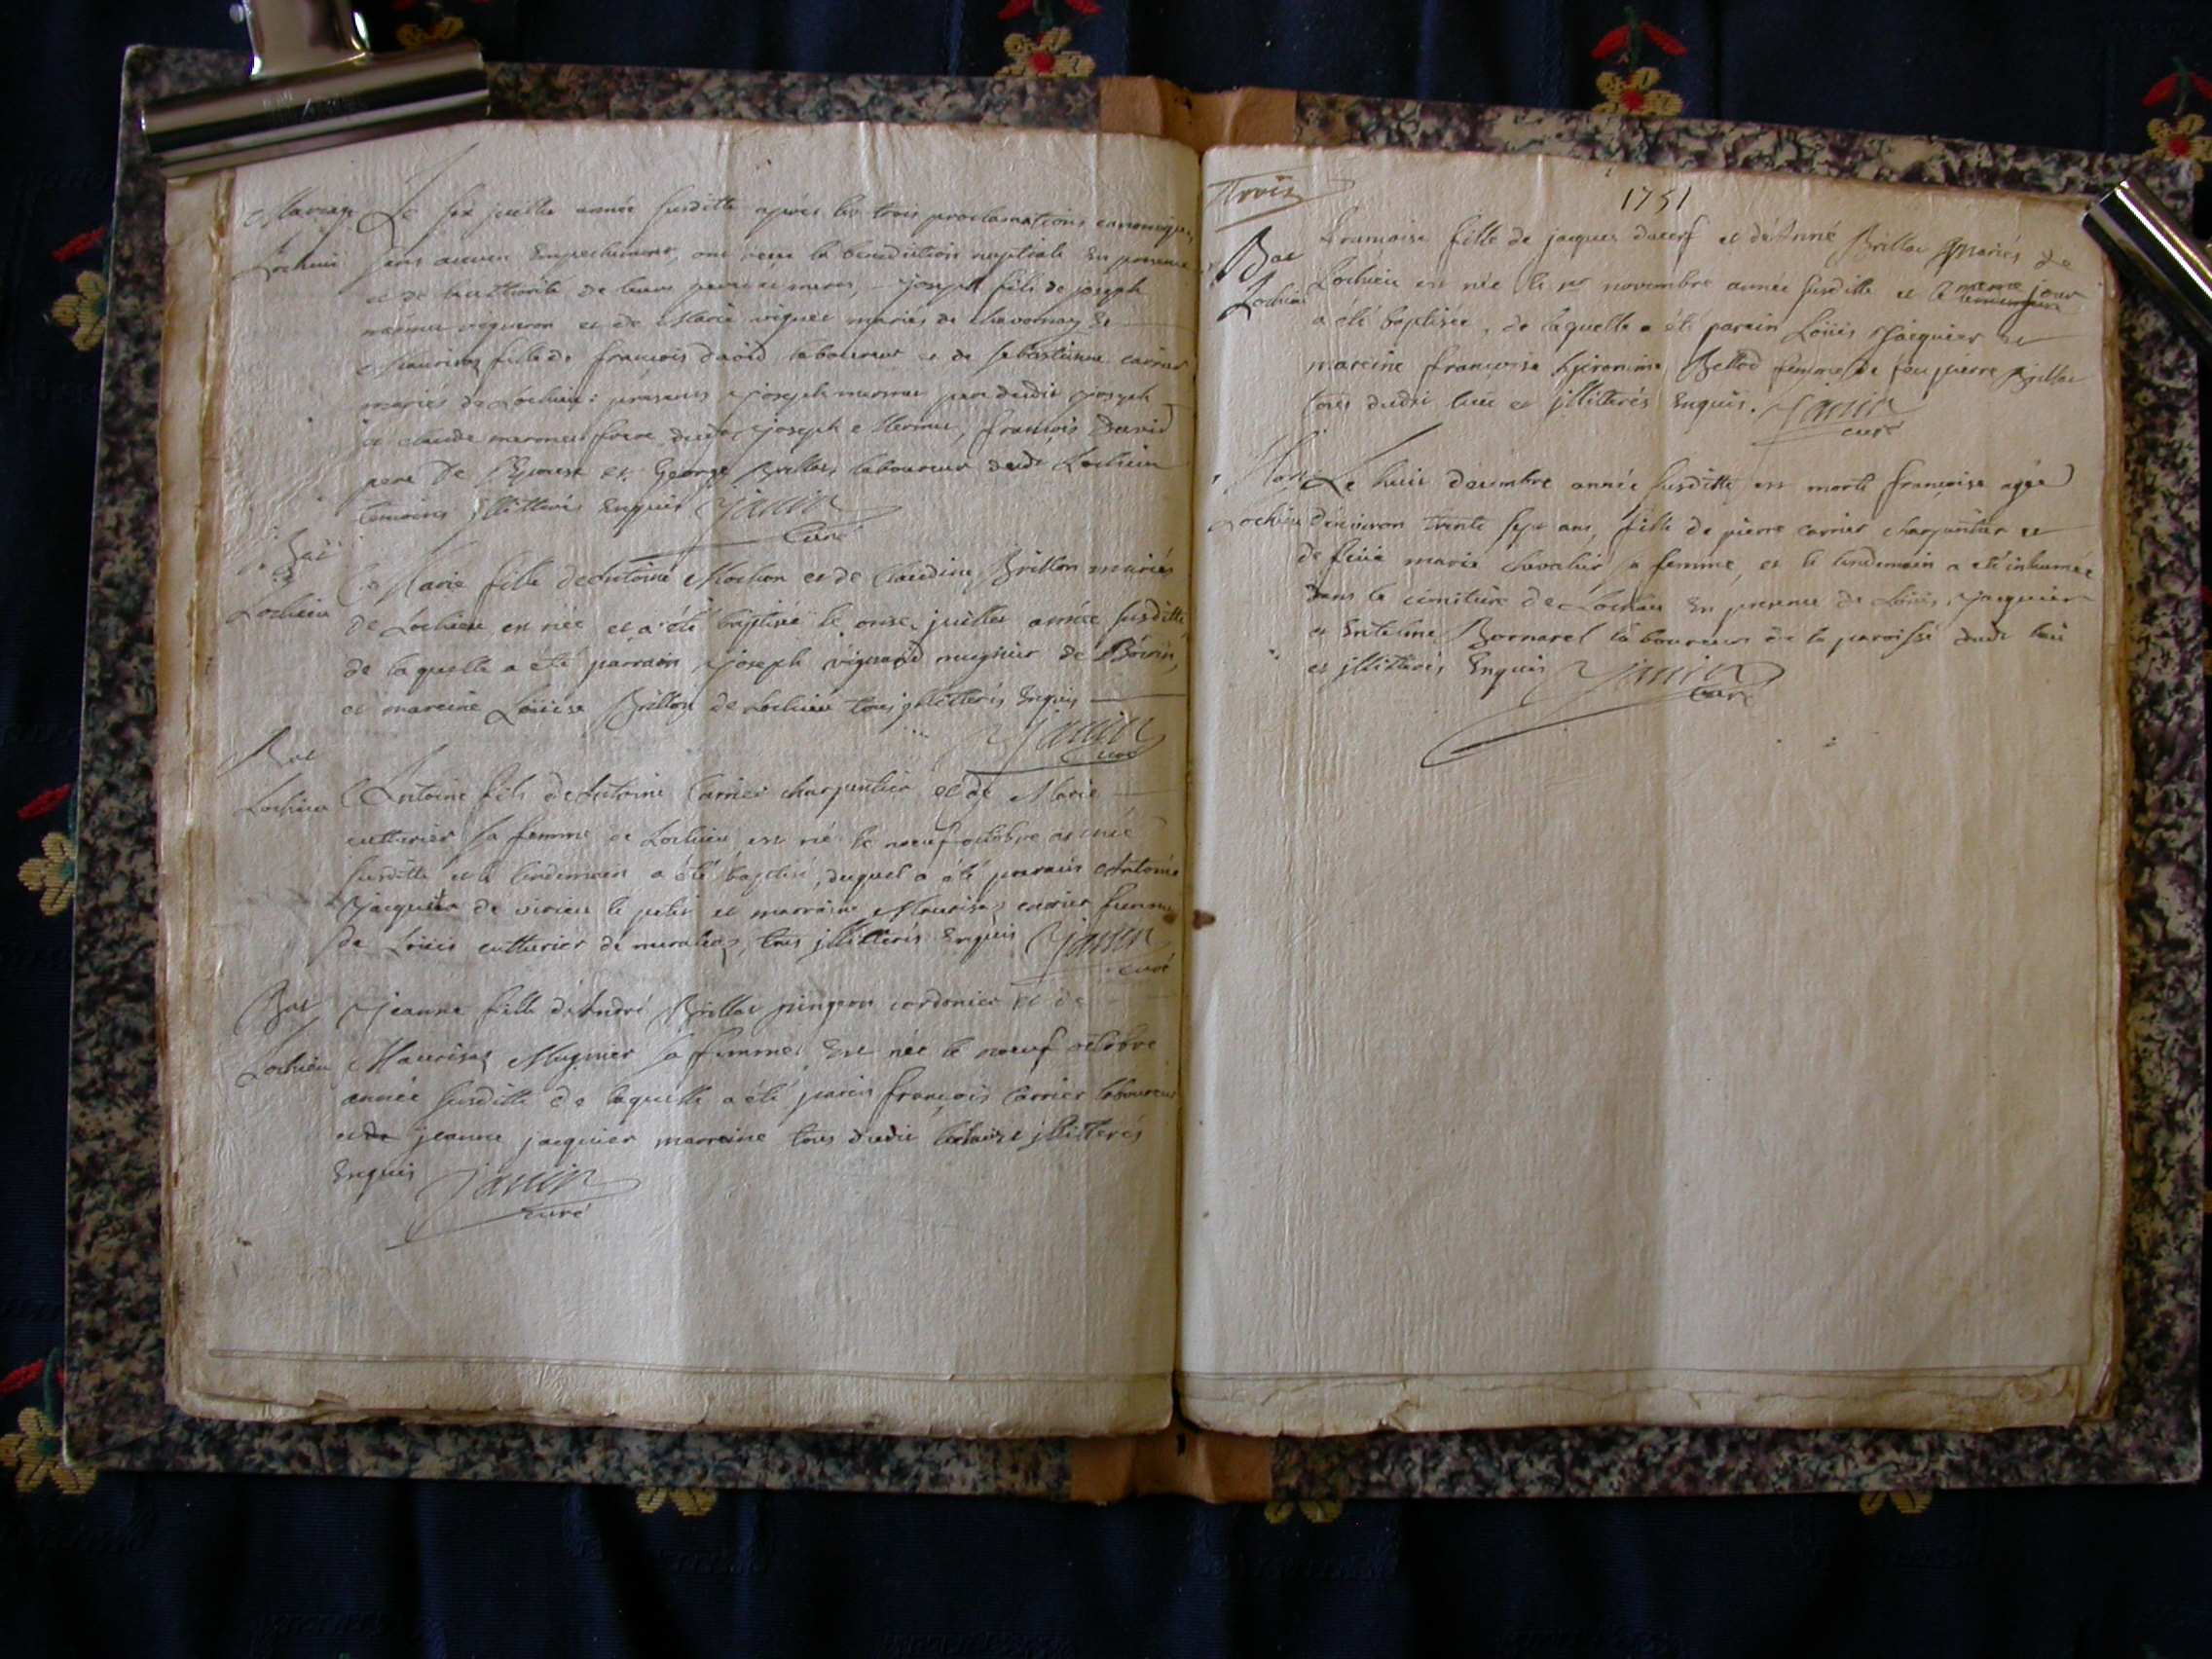 Mariage Le six juillet année susditte après les trois proclamations canoniques
Lochieu sans aucun Empechement, ont reçu la benediction nuptiale En presence
et de l'authorité de leurs peres et meres, joseph fils de joseph
mermet vigneron et de Marie viguet mariés de chavornay Et
Maurisaz fille de françois david laboureur et de sebastienne carrier
mariés de Lochieu: présents joseph mermet pere dudit joseph
et claude mermet frere dudit joseph Mermet, françois David
pere De l'Epouse et George Brillat laboureur dudt Lochieu
temoins jllitterés Enquis Janin
Curé
Bat
Lochieu
Marie fille de Antoine Mochon et de Claudine Brillon mariés
de Lochieu est née et a été baptisée le onze juillet année susditte
de laquelle a été parrain joseph mugnier de
et mareine Loüise Brillon de Lochieu tous jllitterés Enquis
Janin
Curé
Bat
Lochieu
Antoine fils de Antoine Carrier charpentier et de Marie
cutturier sa femme de Lochieu est né le neuf octobre année
susditte et le lendemain a été baptisé, duquel a été parrain Antoine
de virieu le petit et marraine Maurisaz carrier femme
de Loüis cutturier de tous jllitterés Enquis Janin
curé
Bat Jeanne fille d'André Brillat pingeon cordonier et de
Lochieu Maurisaz Mugnier sa femme Est née le neuf octobre
année susditte de laquelle a été parein françois Carrier laboureur
et de jeanne jacquier marreine tous dudit jllitterés
Enquis Janin
curé
Trois
1751
Bat
Lochieu
francoise fille de jacques ducerf et d'Anne Brillat mariés de
Lochieu est née le novembre année susditte et le meme jour
a été baptisée, de laquelle a été parein Loüis Jacquier et
mareine françoise hieronime Bellod femme de feu pierre Brillat
tous dudit lieu et jllitterés Enquis. Janin
curé
Mort Le huit decembre année susditte est morte françoise agée
Lochieu d'environ trente sept ans, fille de pierre carrier charpentier et
de feüe marie chevalier sa femme, et le lendemain a été inhumée
dans le cimitiere de Lochieu En presence de Loüis Jacquier
et Entelme Bornarel laboureurs de la paroisse dudt lieu
et jllitterés Enquis Janin
Curé